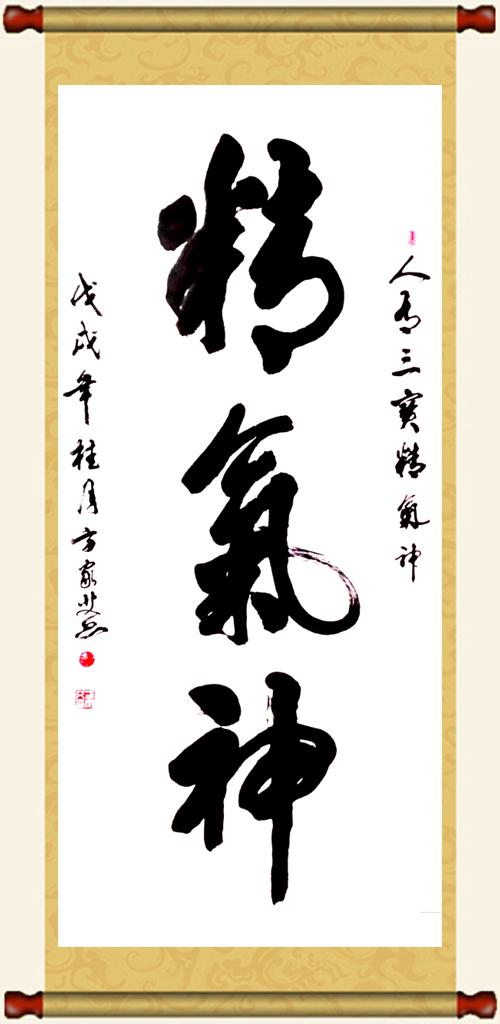 人有三寶精氣神
精氣神
戊戌年桂月方家